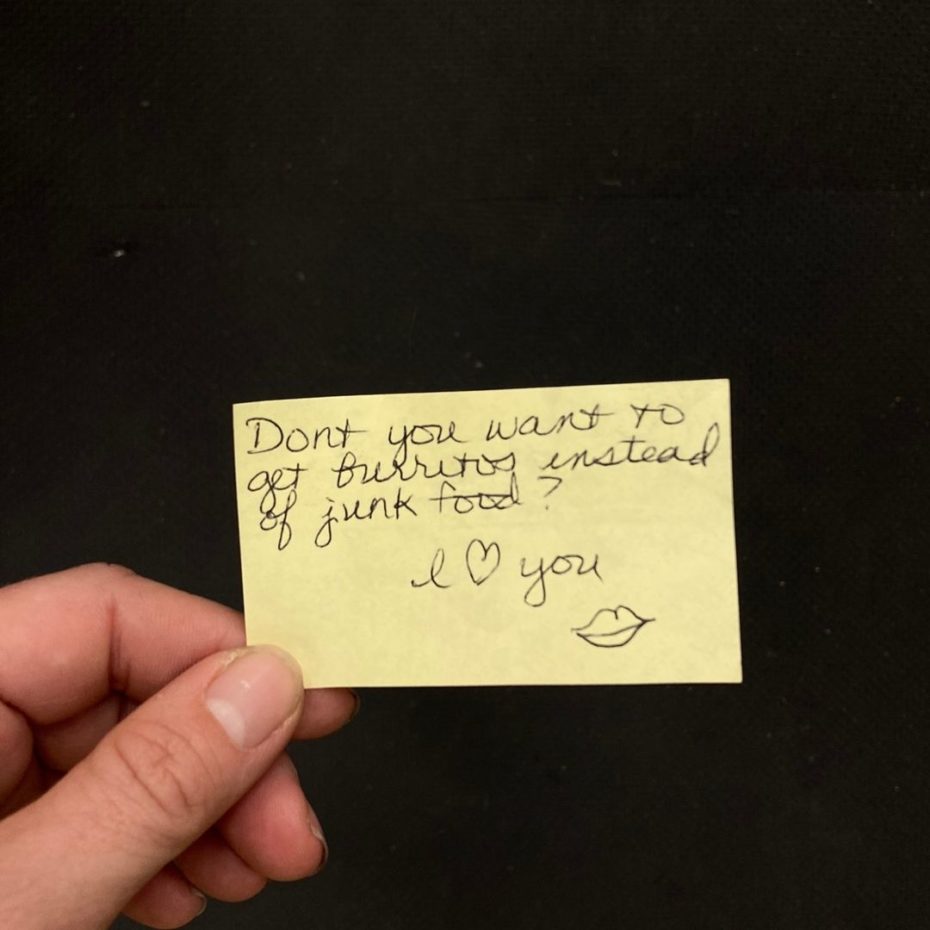 Dont you want to
get burritos instead
of junk food?
I ♡ you